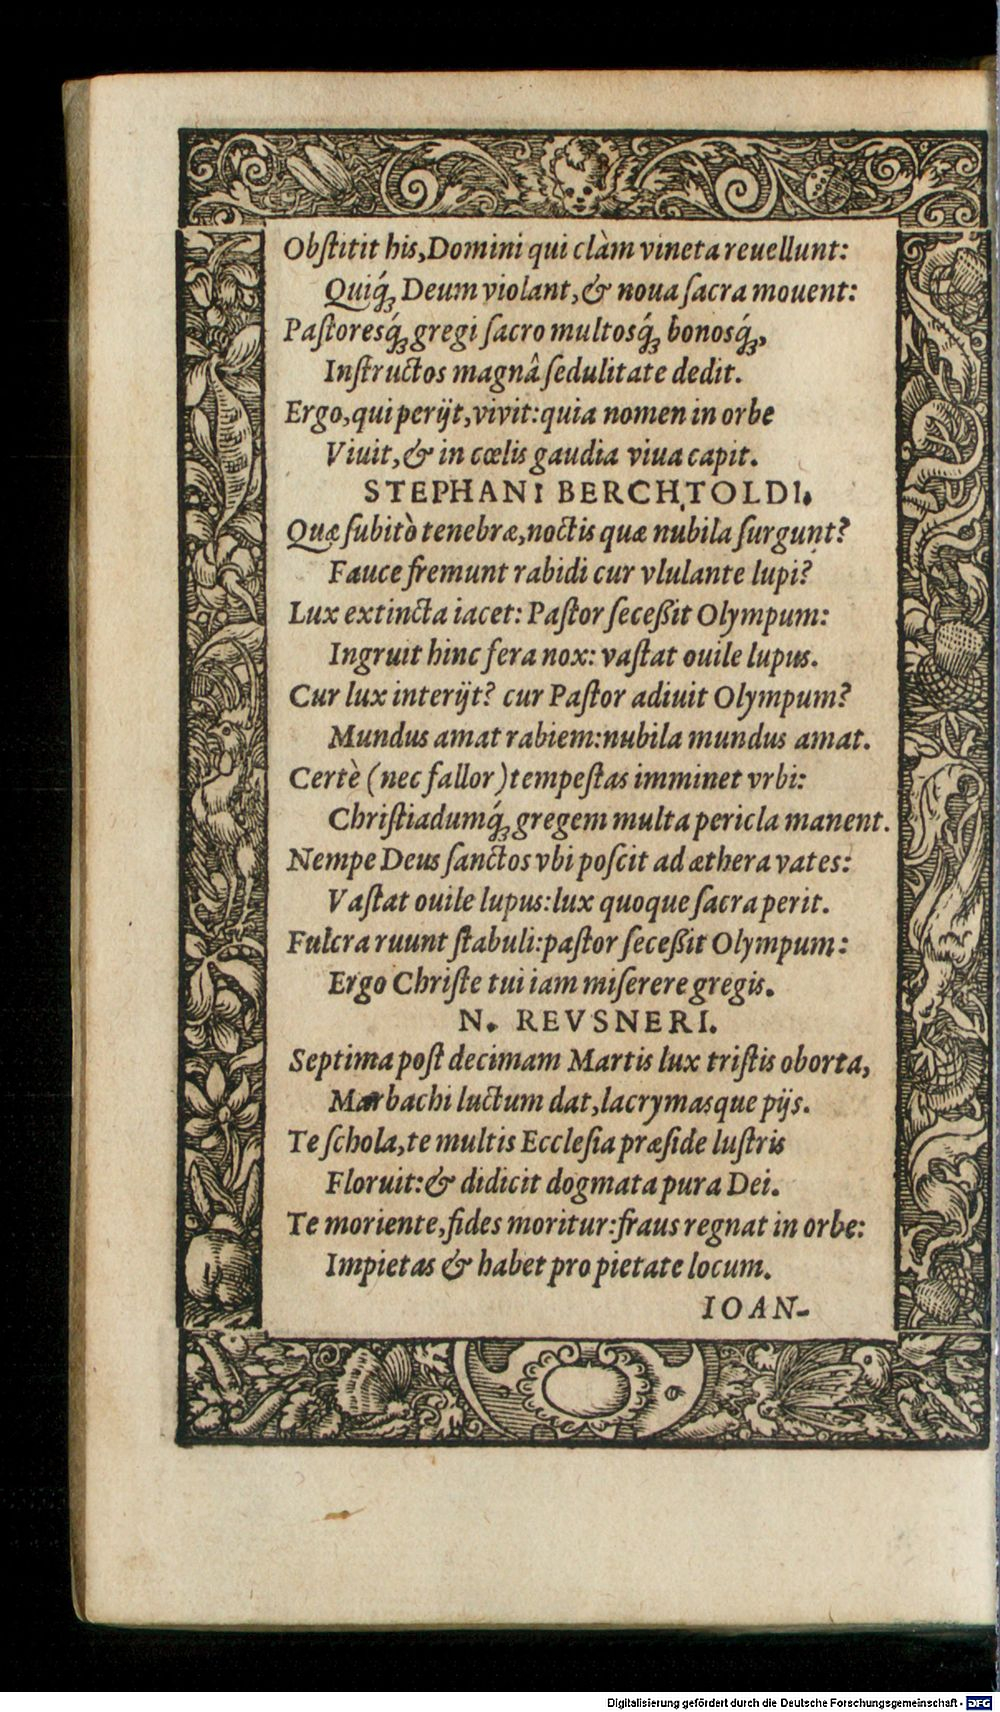 Obſtitit his, Domini qui clàm vineta reuellunt:
Quiq́; Deum violant, & noua ſacra mouent:
Paſtoresq́; gregi ſacro multosq́; bonosq́;,
Inſtructos magnâ ſedulitate dedit.
Ergo, qui perijt, vivit: quia nomen in orbe
Viuit, & in cœlis gaudia viua capit.
STEPHANI BERCHTOLDI.
Quæ ſubitò tenebræ, noctis quæ nubila ſurgunt?
Fauce fremunt rabidi cur vlulante lupi?
Lux extincta iacet: Paſtor ſeceßit Olympum:
Ingruit hinc fera nox: vaſtat ouile lupus.
Cur lux interijt? cur Paſtor adiuit Olympum?
Mundus amat rabiem: nubila mundus amat.
Certè (nec fallor) tempeſtas imminet vrbi:
Chriſtiadumq́; gregem multa pericla manent.
Nempe Deus ſanctos vbi poſcit ad æthera vates:
Vaſtat ouile lupus: lux quoque ſacra perit.
Fulcra ruunt ſtabuli: paſtor ſeceßit Olympum:
Ergo Chriſte tui iam miſerere gregis.
N. REVSNERI.
Septima poſt decimam Martis lux triſtis oborta,
Marbachi luctum dat, lacrymasque pijs.
Te ſchola, te multis Eccleſia præſide luſtris
Floruit: & didicit dogmata pura Dei.
Te moriente, fides moritur: fraus regnat in orbe:
Impietas & habet pro pietate locum.
IOAN-
Digitalisierung gefördert durch die Deutsche Forschungsgemeinschaft - DFG